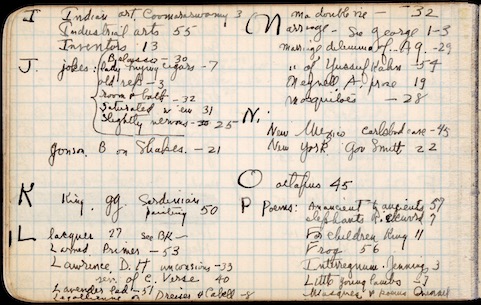 I Indian art, Coomaraswamy 3
Industrial arts 55
Inventors 13
J. jokes: Belasco - 30
Lady trying cigars - 7
old refs - 3
room & bath - 32
Saturated w 'em 31
Slightly nervous - 25
Jonson. B on Shakes. - 21
K King. gg. Sardinian
painting 50
L lacquer 27 see BK
Larned Primer - 53
Lawrence D. H unconscious - 33
rev. of C. Verse 40
Lavender lad - 51
on Dreiser & Cabell - 8
M ma double vie - 32
Marriage - Sir George 1-3
marriage dilemma - 29
" of Yussuf Kahn - 54
Meynell. A. prose 19
Mosquitoes - 28
N.
New Mexico Carlsbad cave - 45
New York. Gov Smith 22
O octopus 45
P Poems: ancient 57
elephants 7
For children King 11
Frog 56
Interregnum Jenning 3
Little young lambs
Masques &